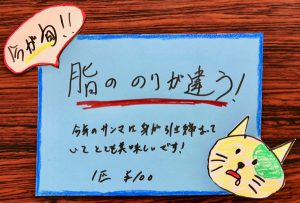 今が旬!!
脂の のりが違う!
今年のサンマは身が引き締まって
いて とても美味しいです!
1匹 ¥100